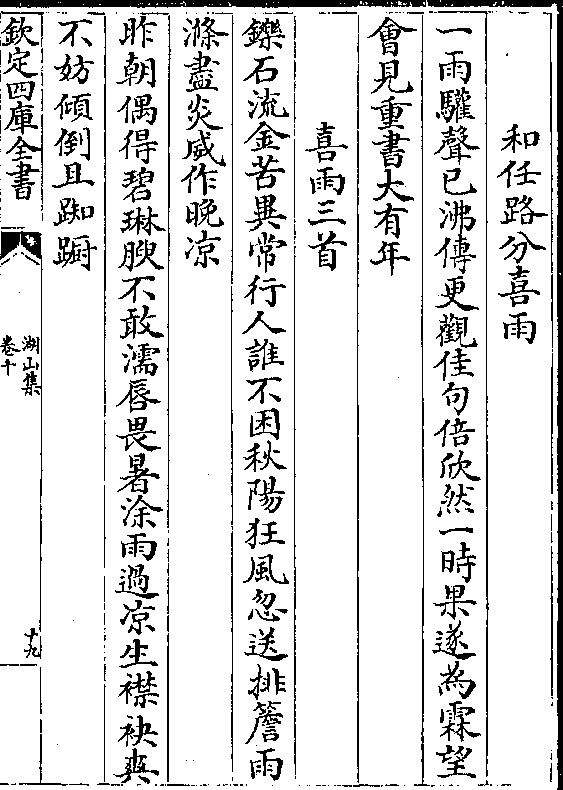 和任路分喜雨
一雨驩聲已沸傳更觀佳句倍欣然一時果遂為霖望
會見重書大有年
喜雨三首
鑠石流金苦異常行人誰不困秋陽狂風忽送排簷雨
滌盡炎威作晚凉
昨朝偶得碧琳腴不敢濡唇畏暑涂雨過凉生襟袂爽
不妨傾倒且踟蹰
欽定四庫全書
湖山集
卷十
十九